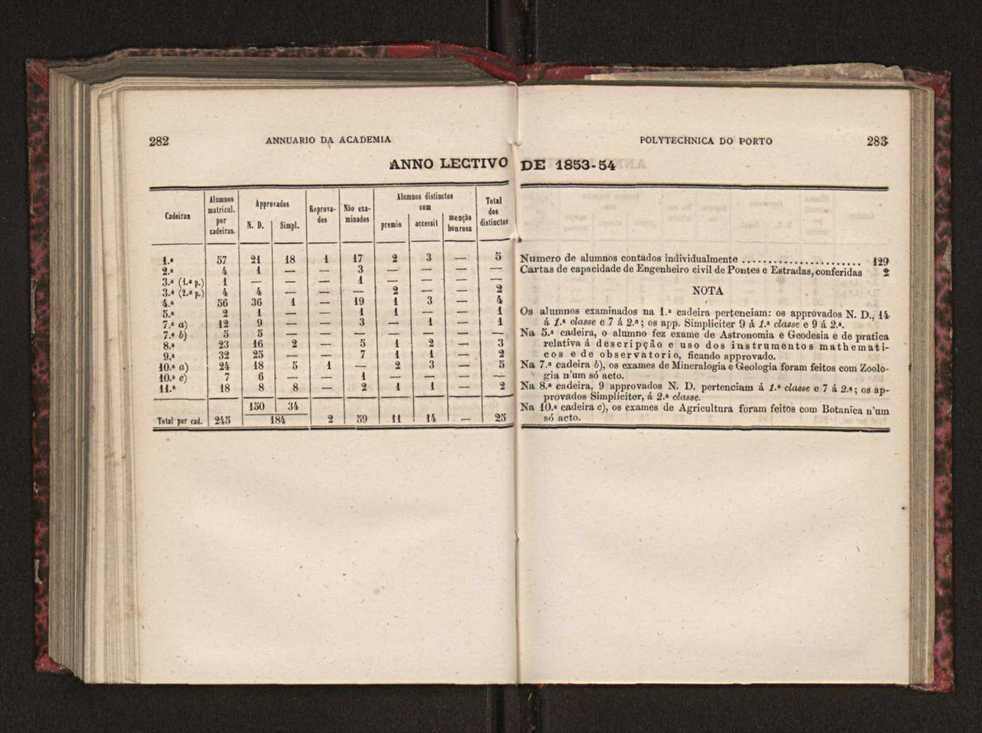 282 ANNUARIO DA ACADEMIA
ANNO LECTIVO
Cadeiras | Alumnos matricul. por cadeiras. | Approvados N. D. | Simpl. | Reprova-dos | Não exa-minados | Alumnos distinctos com premio | accessit | menção honrosa | Total dos distinctos
1.ª 57 21 18 1 17 2 3 — 5
2.ª 4 1 — — 3 — — — —
3.ª (1.ª p.) 1 — — — 1 — — — —
3.ª (2.ª p.) 4 4 — — — 2 — — 2
4.ª 56 36 1 — 19 1 3 — 4
5.ª 2 1 — — 1 1 — — 1
7.ª a) 12 9 — — 3 — 1 — 1
7.ª b) 5 5 — — — — — — —
8.ª 23 16 2 — 5 1 2 — 3
9.ª 32 25 — — 7 1 1 — 2
10.ª a) 24 18 5 1 — 2 3 — 5
10.ª c) 7 6 — — 1 — — — —
11.ª 18 8 8 — 2 1 1 — 2
150 34
Total por cad. 245 184 2 59 11 14 — 25
POLYTECHNICA DO PORTO 283
DE 1853-54
Numero de alumnos contados individualmente ..................... 129
Cartas de capacidade de Engenheiro civil de Pontes e Estradas, conferidas 2
NOTA
Os alumnos examinados na 1.ª cadeira pertenciam: os approvados N. D., 14
á 1.ª classe e 7 á 2.ª; os app. Simpliciter 9 á 1.ª classe e 9 á 2.ª.
Na 5.ª cadeira, o alumno fez exame de Astronomia e Geodesia e de pratica
relativa á descripção e uso dos instrumentos mathemati-
cos e de observatorio, ficando approvado.
Na 7.ª cadeira b), os exames de Mineralogia e Geologia foram feitos com Zoolo-
gia n'um só acto.
Na 8.ª cadeira, 9 approvados N. D. pertenciam á 1.ª classe e 7 á 2.ª; os ap-
provados Simpliciter, á 2.ª classe.
Na 10.ª cadeira c), os exames de Agricultura foram feitos com Botanica n'um
só acto.